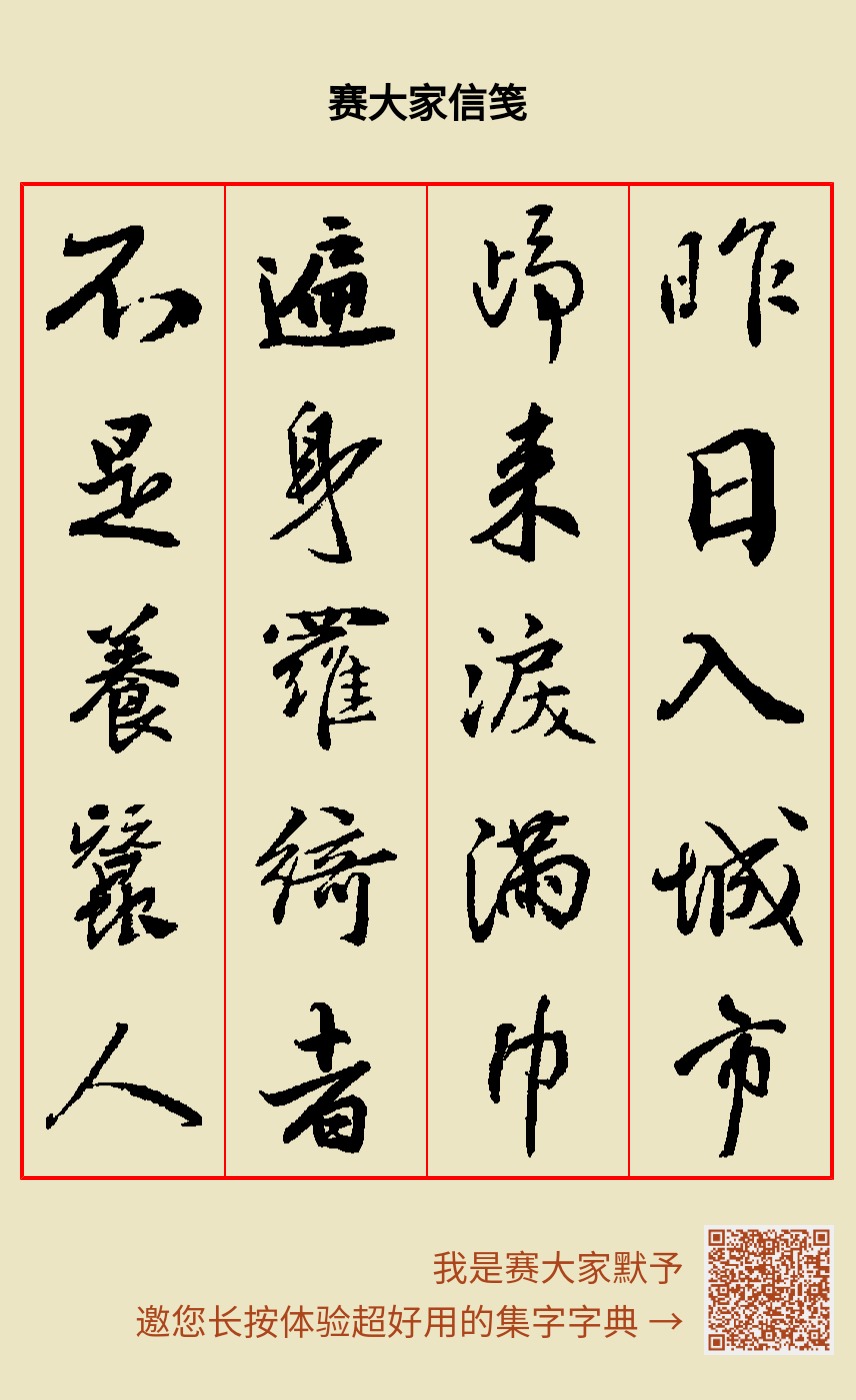 赛大家信笺
昨日入城市
歸来淚滿巾
遍身羅綺者
不是養蠶人
我是赛大家默予
邀您长按体验超好用的集字字典 →